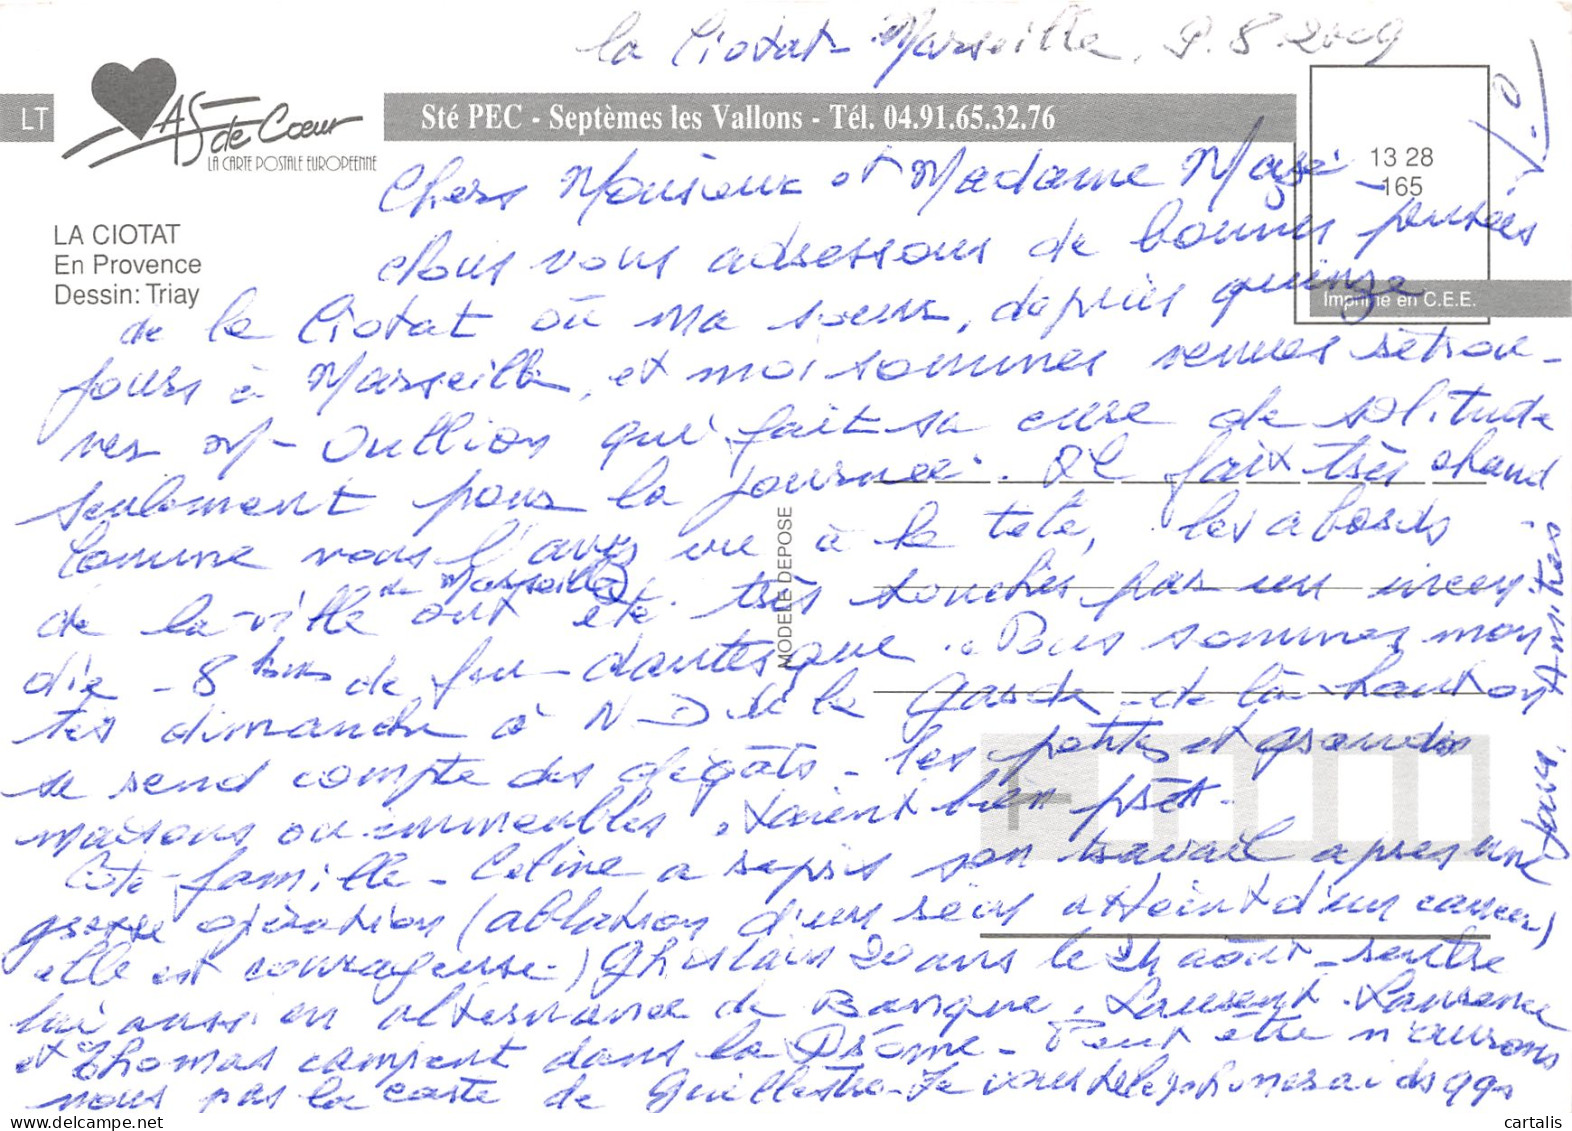 la Ciotat - Marseille, 9.8.2009
LT
As de Coeur
LA CARTE POSTALE EUROPEENNE
Sté PEC - Septèmes les Vallons - Tél. 04.91.65.32.76
13 28
165
LA CIOTAT
En Provence
Dessin: Triay
Imprimé en C.E.E.
MODELE DEPOSE
Chers Monsieur et Madame
Nous vous adressons de bonnes pensées
de la Ciotat où ma soeur, depuis quinze
jours à Marseille, et moi sommes venues retrou-
ver Mr Oullion qui fait sa cure de solitude
seulement pour la journée. Il fait très chaud
Comme vous l'avez vu à la télé, les abords
de la ville de Marseille ont été très touchés par un incen
die - 8 kms de feu dantesque. Nous sommes mon
tés dimanche à N D de la garde - de là haut on
se rend compte des dégâts - les petites et grandes
maisons ou immeubles étaient bien près.
Côté famille - Céline a repris son travail après une
grosse opération (ablation d'un sein atteint d'un cancer)
elle est courageuse) Ghislain 20 ans le 24 août - rentre
lui aussi en alternance de Banque. Laurent, Laurence
et Thomas campent dans la Drôme - Peut être n'aurons
nous pas la carte de Guillestre - Je vous téléphonerai ds qqs
jours. Amitiés